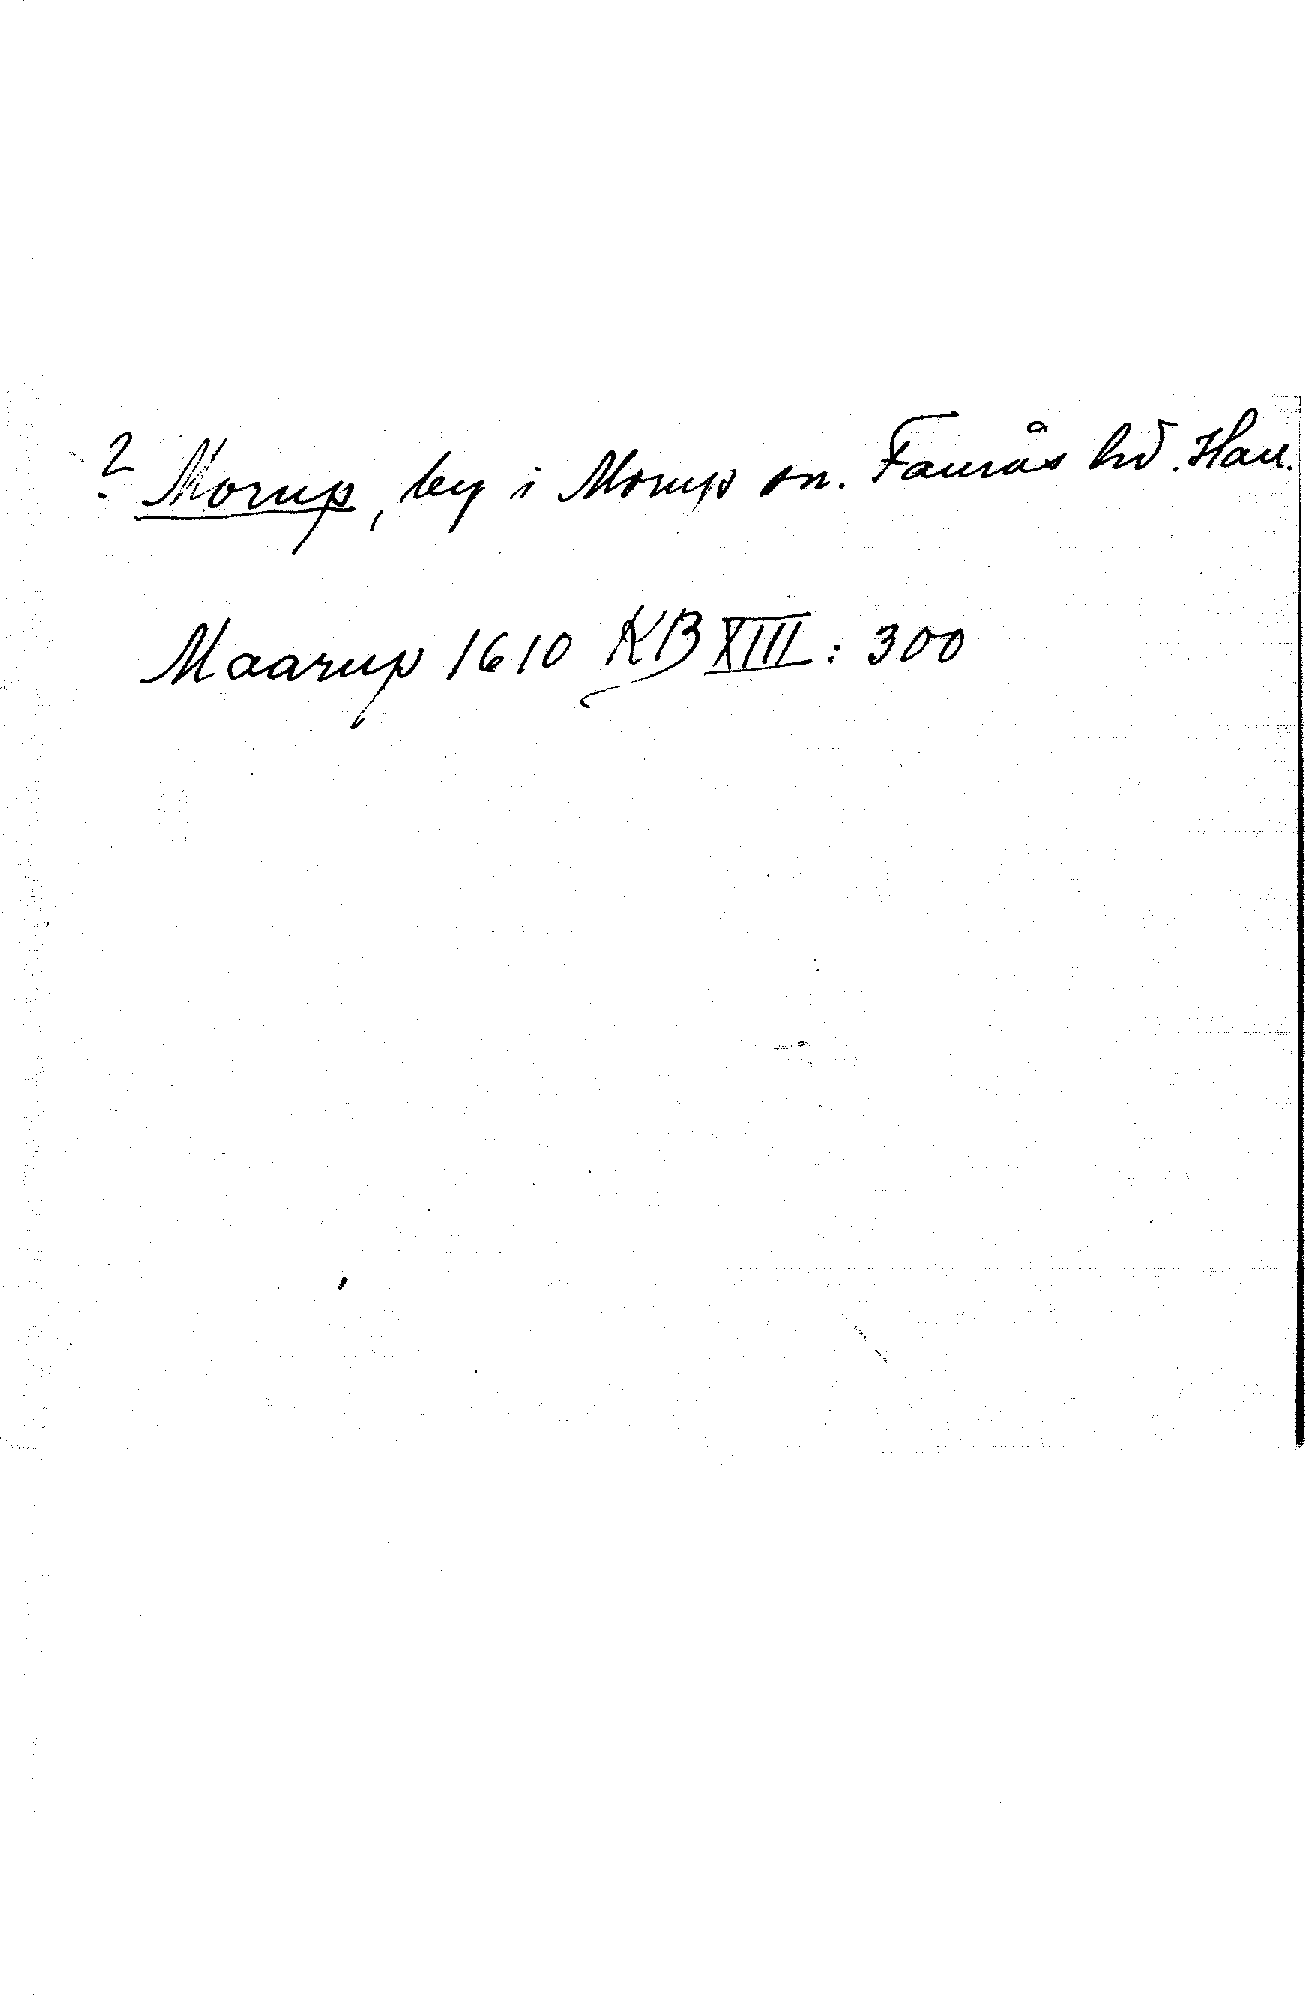 ? Morup, by i Morup sn. Faurås hd. Hall.
Maarup 1610 KB XIII: 300